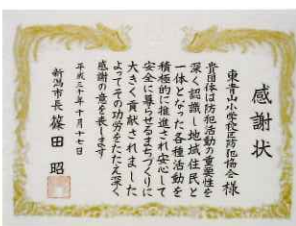 感謝状
東青山小学校区防犯協会 様
貴団体は防犯活動の重要性を
深く認識し地域住民と
一体となった各種活動を
積極的に推進され安心して
安全に暮らせるまちづくりに
大きく貢献されました
よってその功労をたたえ深く
感謝の意を表します
平成三十年十月十七日
新潟市長 篠田 昭